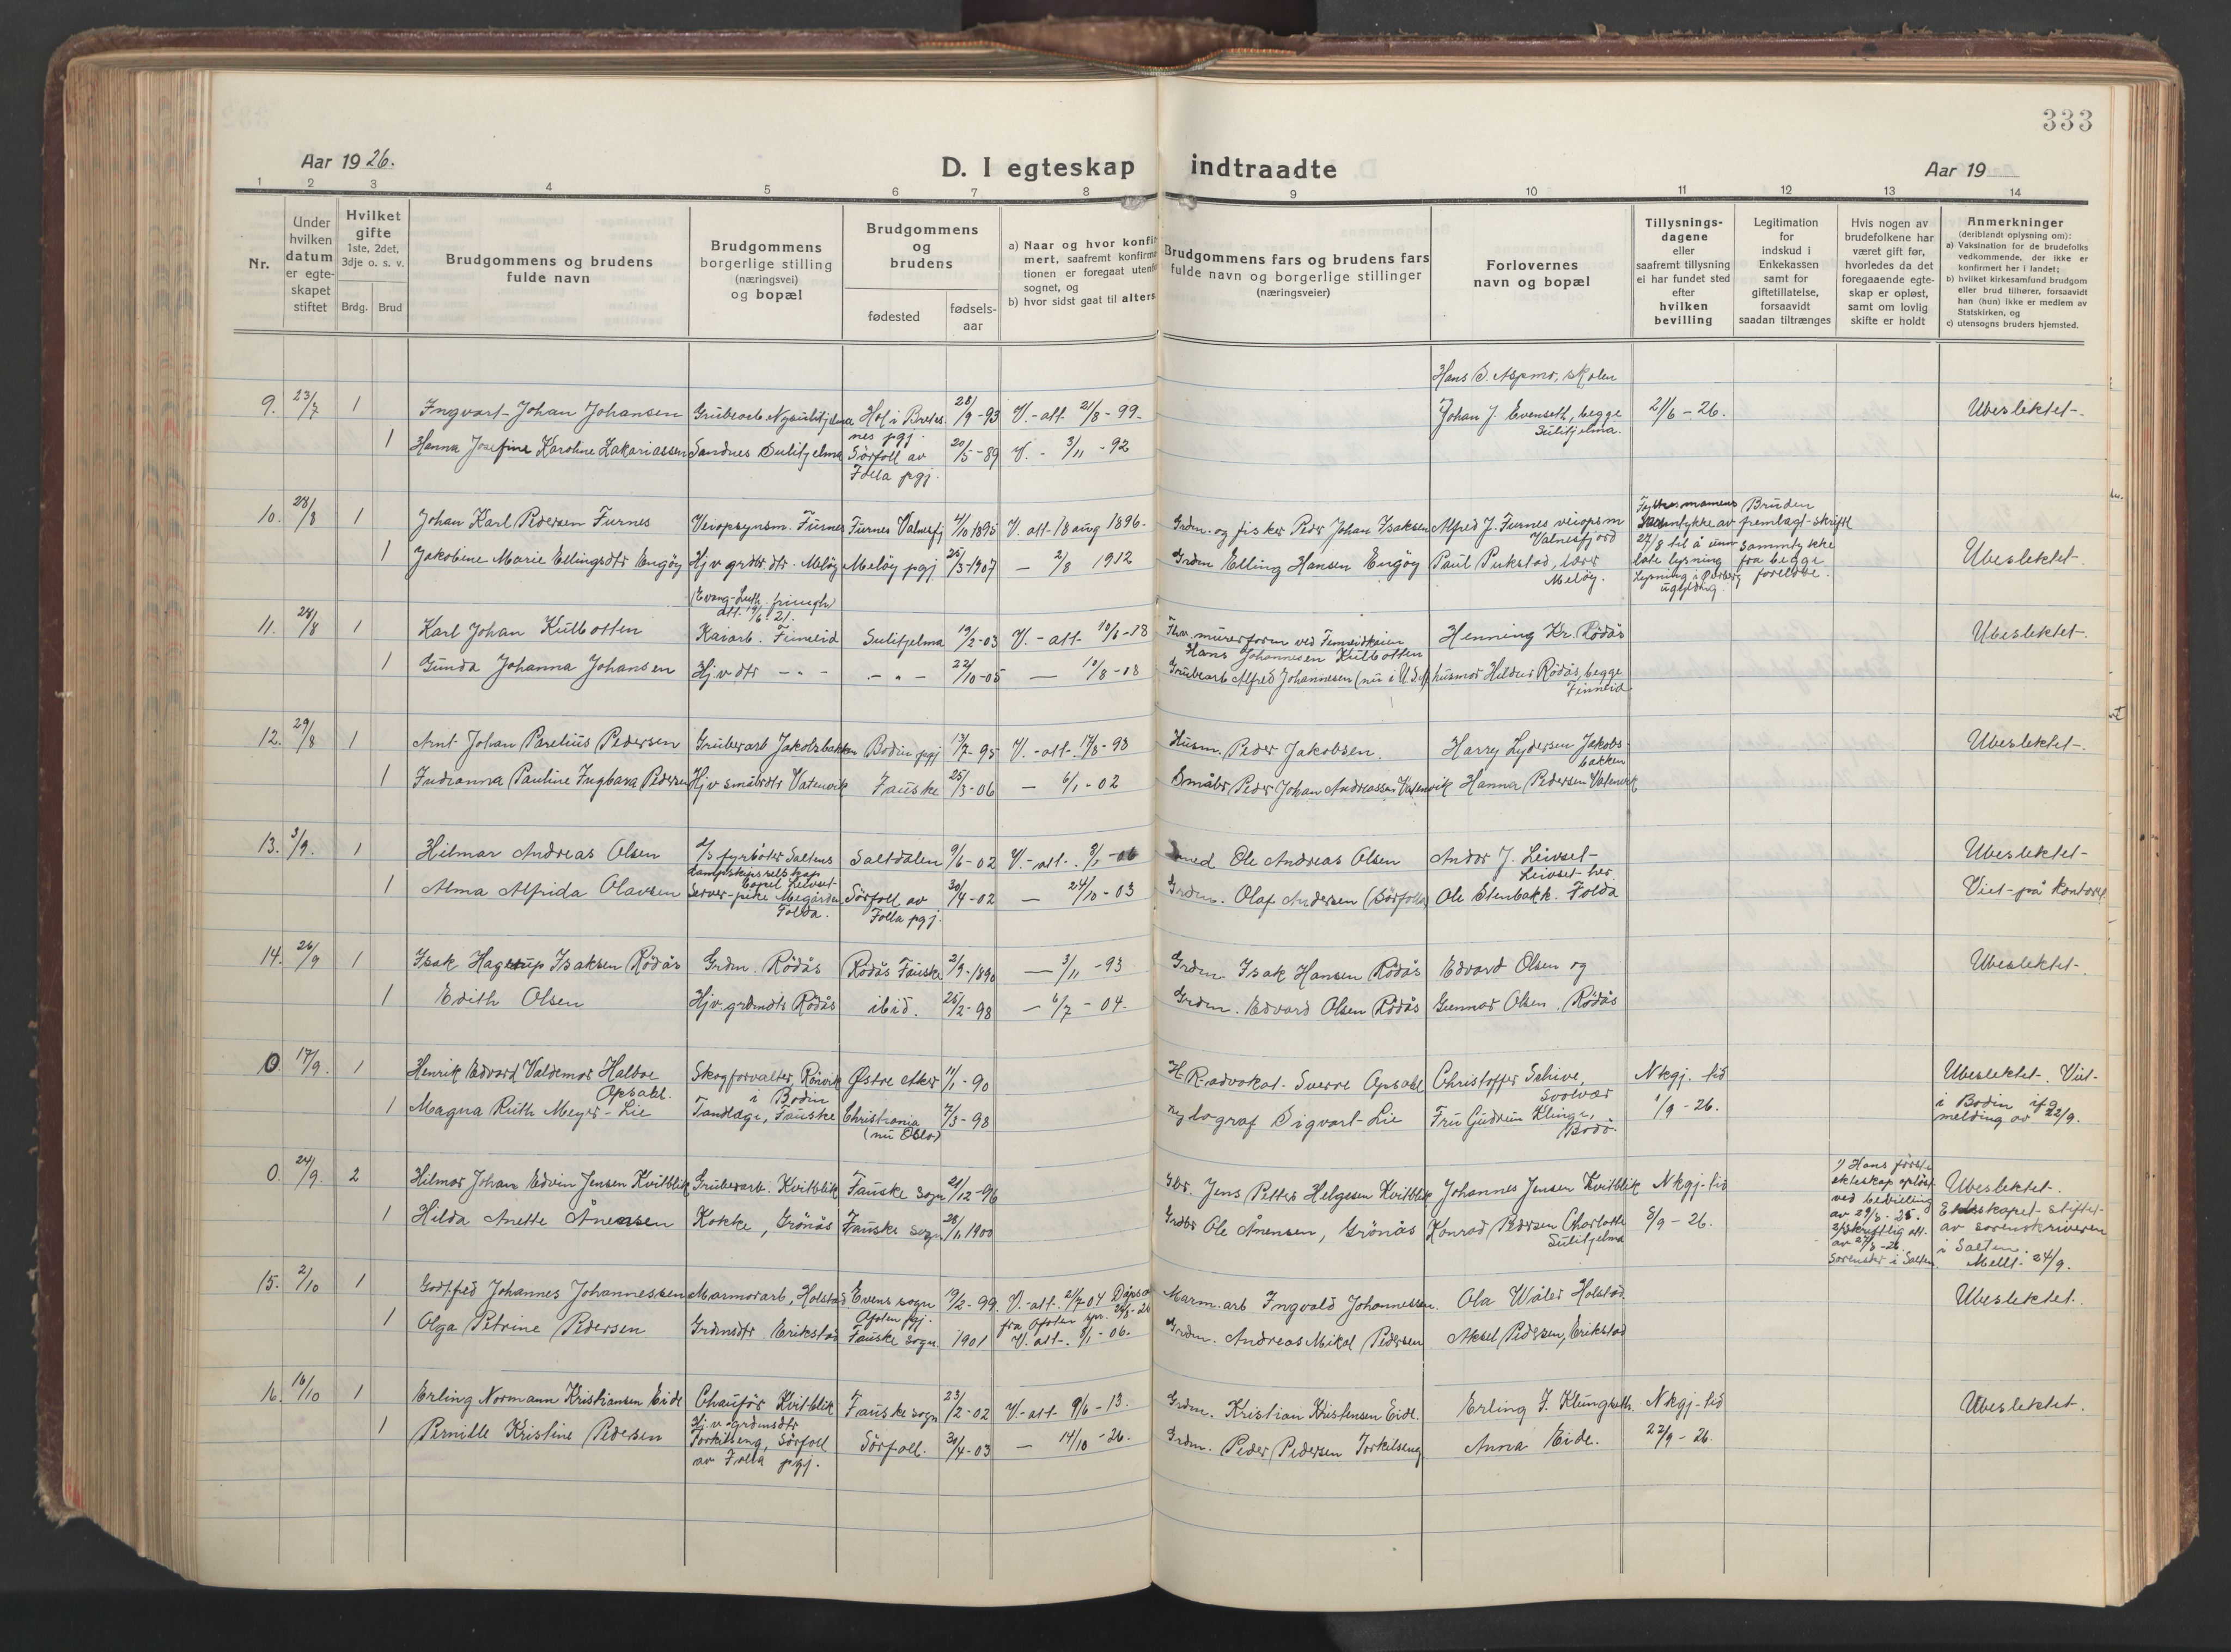 333
Aar 1926.
D. I egteskap indtraadte
Aar 19
1 2 3 4 5 6 7 8 9 10 11 12 13 14
Nr.
Under
hvilken
datum
er egte-
skapet
stiftet
Hvilket
gifte
1ste, 2det,
3dje o. s. v.
Brdg. Brud
Brudgommens og brudens
fulde navn
Brudgommens
borgerlige stilling
(næringsvei)
og bopæl
Brudgommens
og
brudens
fødested
fødsels-
aar
a) Naar og hvor konfir
mert, saafremt konfirma
tionen er foregaat utenfo
sognet, og
b) hvor sidst gaat til alters
Brudgommens fars og brudens fars
fulde navn og borgerlige stillinger
(næringsveier)
Forlovernes
navn og bopæl
Tillysnings-
dagene
eller
saafremt tillysning
ei har fundet sted
efter
hvilken
bevilling
Legitimation
for
indskud i
Enkekassen
samt for
giftetillatelse,
forsaavidt
saadan tiltrænges
Hvis nogen av
brudefolkene har
været gift før,
hvorledes da det
foregaaende egte-
skap er opløst,
samt om lovlig
skifte er holdt
Anmerkninger
(deriblandt oplysning om):
a) Vaksination for de brudefolks
vedkommende, der ikke er
konfirmert her i landet;
b) hvilket kirkesamfund brudgom
eller brud tilhører, forsaavidt
han (hun) ikke er medlem av
Statskirken, og
c) utensogns bruders hjemsted.
Hans S. Aspmo, skolen
9. 23/7 1 Ingvart Johan Johansen Grubearb Nysulitjelma Hol i Bretes- 28/9-93 V.-att 21/8-99. Johan J. Evenseth, begge 21/6-26. Ubeslektet.
nes pgj. Sulitjelma.
1 Hanna Josefine Karoline Zakariassen Sandnes Sulitjelma Sörfoll av 20/5-89 V. - 3/11-92
Folla pgj.
10. 28/8 1 Johan Karl Pedersen Furnes Veiopsynsm. Furnes Furnes Valnesfj 4/10 1895 V. att 18 aug 1896. Grdm. og fisker Peder Johan Isaksen Alfred J. Furnes veiopsm
Valnesfjord
Fylkesmannens
samtykke av
27/8 til å und
late lysning
Bruden
fremlagt skriftl
sammtykke
fra begge
foreldre.
1 Jakobine Marie Ellingsdtr Engöy Hjv grdbr dtr. Melöy Melöy pgj 26/3-1907 — 2/8 1912 Grdm Elling Hansen Engöy Paul Pukstad, lærer Ubeslektet.
Melöy.
(Evang-Luth. frimgh)
att. 19/6. 21.
11. 28/8 1 Karl Johan Kulbotten Kaiarb. Finneid Sulitjelma 19/2-03 V.-att 10/6-18 Fhv. murerform ved Finneidkaien Henning Kr. Rödås Ubeslektet.
Hans Johannesen Kulbotten
1 Gunda Johanna Johansen Hjv dtr - " - - " - 22/10-05 — 10/8-08 Grubearb Alfred Johannesen (nu i U.S.A) husmor Hildur Rödås, begge
Finneid
12. 29/8 1 Arnt Johan Parelius Pedersen Grubearb Jakobsbakken Bodin pgj 13/7-95 V.-att. 17/8-98 Husm. Peder Jakobsen. Harry Lydersen Jakobs- Ubeslektet.
bakken
1 Indianna Pauline Ingbara Pedersen Hjv småbrdtr Vatenvik Fauske 25/3-06 — 6/1-02 Småbr Peder Johan Andreassen Vatenvik Hanna Pedersen Vatenvik
13. 3/9. 1 Hilmar Andreas Olsen D/S fyrböter Saltens Saltdalen 9/6-02 V.-att. 8/1-06 Ole Andreas Olsen Andor J. Leivset Ubeslektet
Dampskipsselskap
bopel Leivset Leivset her.
1 Alma Alfrida Olavsen Server-pike Megården Sörfoll av 30/4-02 — 24/10-03 Grdm. Olaf Andersen (Sörfolla) Ole Stenbakk. Folda Viet på kontoret
Folda. Folla pgj.
14. 26/9 1 Isak Hagerup Isaksen Rödås Grdm. Rödås Rödås Fauske 2/9-1890 — 3/11-93 Grdm Isak Hansen Rödås Edvard Olsen og Ubeslektet.
1 Edith Olsen Hjv. grdmdtr Rödås ibid. 25/2-98 — 6/7-04. Grdm. Edvard Olsen Rödås Gunnar Olsen, Rödås
0. 17/9. 1 Henrik Edvard Valdemar Halboe Skogforvalter, Rönvik Østre Aker 11/1-90 H.R.advokat Sverre Opsahl Christoffer Schive, Nkgj. tid Ubeslektet. Viet
Opsahl. i Bodin Svolvær i Bodin ifg
1 Magna Ruth Meyer-Lie Tandlæge, Fauske Christiania 7/3-98 Xylograf Sigvart Lie Fru Gudrun Klinge, 1/9-26. melding av 22/9.
(nu Oslo) Bodö.
0. 24/9. 2 Hilmar Johan Edvin Jensen Kvitblik Grubearb. Kvitblik Fauske sogn 21/12-96 Gbr. Jens Petter Helgesen Kvitblik Johannes Jensen Kvitblik Nkgj-tid
1) Hans förste
ekteskap oplöst
ved bevilling
av 29/3-25.
2) skriftlig att.
av 27/8-26
Sorenskr i Salten.
Ubeslektet.
Ekteskapet stiftet
av sorenskriveren
i Salten.
Meldt. 24/9.
1 Hilda Anette Ånensen Kokke, Grönås Fauske sogn 28/11 1900 Grdbr Ole Ånensen, Grönås Konrad Pedersen Charlotte 8/9-26.
Sulitjelma
15. 2/10 1 Godtfred Johannes Johannessen Marmorarb, Holstad Evens sogn 19/2-99 V.-att. 2/7-04 Dåpsatt Marm.arb Ingvald Johannessen. Ola Waler Holstad Ubeslektet.
Ofoten pgj. fra Ofoten
1 Olga Petrine Pedersen Grdmsdtr Erikstad Fauske sogn. 1901 V. att. 8/1-06. Grdm. Andreas Mikal Pedersen Aksel Pedersen, Erikstad
16. 16/10 1 Erling Normann Kristiansen Eide Chauför Kvitblik Fauske sogn 23/2-02 V.-att 9/6-13. Grdm. Kristian Kristensen Eide. Erling J. Klungseth Nkgj-tid Ubeslektet.
Hj.v. grdmsdtr
1 Pernille Kristine Pedersen Torkilseng, Sörfoll Sörfoll. 30/4-03 — 14/10-26. Grdm. Peder Pedersen Torkilseng Anna Eide. 22/9-26.
av Folla pgj.